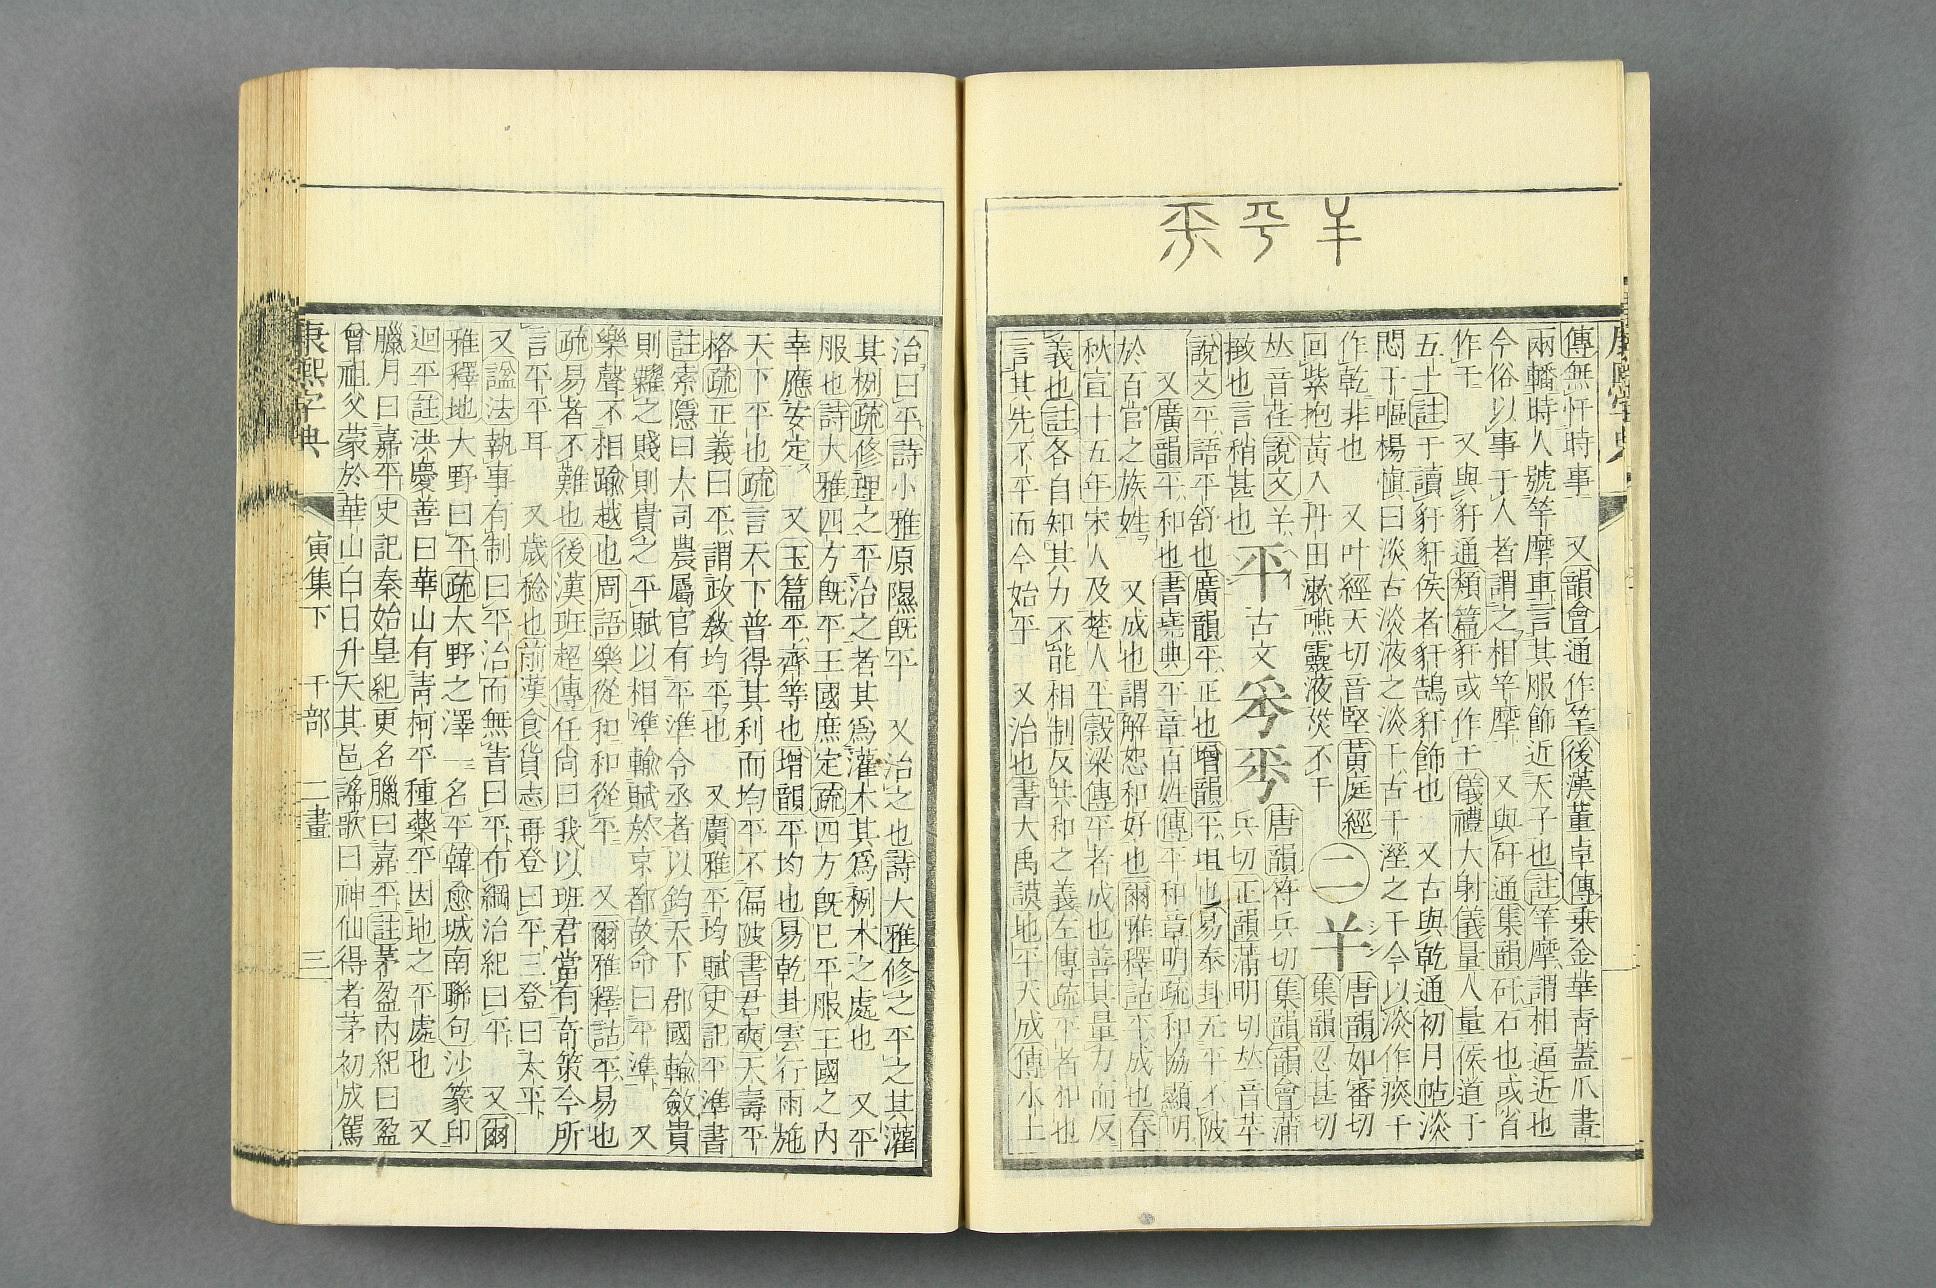 傳無忓時事　又韻會通作竿後漢董卓傳乘金華靑蓋爪畫
兩轓時人號竿摩車言其服飾近天子也註竿摩謂相逼近也
今俗以事干人者謂之相竿摩　又與矸通集韻矸石也或省
作干　又與豻通類篇豻或作干儀禮大射儀量人量侯道干
五十註干讀豻豻侯者豻鵠豻飾也　又古與乾通初月帖淡
悶干嘔楊愼曰淡古淡液之淡干古干溼之干今以淡作痰干
作乾非也　又叶經天切音堅黃庭經
回紫抱黃入丹田漱嚥靈液災不干
二
𢆉
唐韻如審切
集韻忍甚切
𠀤音荏說文𢆉
𢷎也言稍甚也
平
古文
𠀤
唐韻符兵切集韻韻會蒲
兵切正韻蒲明切𠀤音苹
說文平語平舒也廣韻平正也增韻平坦也易泰卦无平不陂
又廣韻平和也書堯典平章百姓傳平和章明疏和協顯明
於百官之族姓　又成也謂解恕和好也爾雅釋詁平成也春
秋宣十五年宋人及楚人平穀梁傳平者成也善其量力而反
義也註各自知其力不能相制反共和之義左傳疏平者和也
言其先不平而今始平　又治也書大禹謨地平天成傳水土
治曰平詩小雅原隰旣平　又治之也詩大雅修之平之其灌
其栵疏修理之平治之者其爲灌木其爲栵木之處也　又平
服也詩大雅四方旣平王國庶定疏四方旣已平服王國之內
幸應安定　又玉篇平齊等也增韻平均也易乾卦雲行雨施
天下平也疏言天下普得其利而均平不偏陂書君奭天壽平
格疏正義曰平謂政敎均平也　又廣雅平均賦史記平準書
註索隱曰大司農屬官有平準令丞者以鈞天下郡國輸斂貴
則糶之賤則貴之平賦以相準輸賦於京都故命曰平準　又
樂聲不相踰越也周語樂從和和從平　又爾雅釋詁平易也
疏易者不難也後漢班超傳任尙曰我以班君當有奇策今所
言平平耳　又歲稔也前漢食貨志再登曰平三登曰太平
又諡法執事有制曰平治而無眚曰平布綱治紀曰平　又爾
雅釋地大野曰平疏大野之澤一名平韓愈城南聯句沙篆印
迴平註洪慶善曰華山有靑柯平種藥平因地之平處也　又
臘月曰嘉平史記秦始皇紀更名臘曰嘉平註茅盈內紀曰盈
曾祖父蒙於華山白日升天其邑謠歌曰神仙得者茅初成駕
康熙字典　寅集下　干部　二畫　三